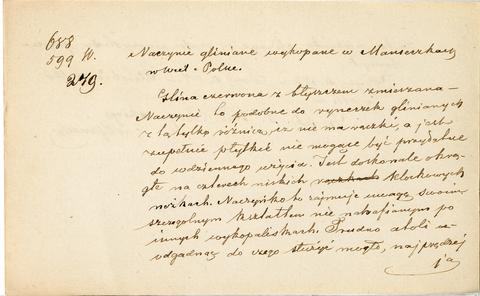 688
599 W.
249.
Naczynie gliniane wykopane w Manieczkach
w Wiel. Polsce.
Glina czerwona z błyszczem zmieszana.
Naczynie to podobne do ryneczek glinianych
z tą tylko różnicą, iż nie ma rączki, a jest
zupełnie płytkie nie mogące być przydatne
do codziennego użycia. Jest doskonale okrą-
głe na czterech niskich klockowych
nóżkach. Naczyńko to zajmuje uwagę swoim
szczególnym kształtem nie natrafianym po
innych wykopaliskach. Trudno atoli
odgadnąć do czego służyć mogło, najprędzej
ja